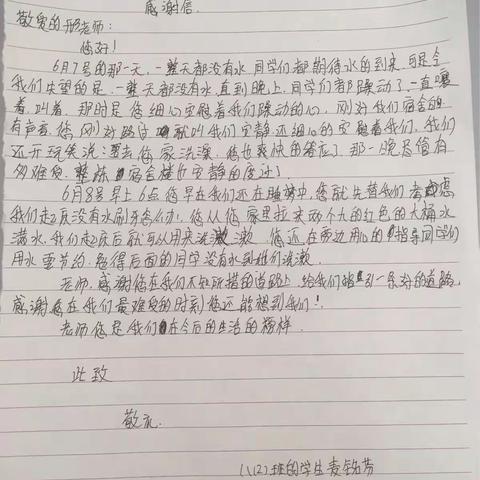 感谢信.
敬爱的邢老师:
您好!
6月7号的那一天,一整天都没有水,同学们都期待水的到来,可是令
我们失望的是,一整天都没有水,直到晚上,同学们都躁动了,一直嚷
着,叫着,那时是您细心安慰着我们躁动的心,刚好我们宿舍
有声音,您刚好路过,就叫我们安静,还细心的安慰着我们,我们
还开玩笑说:要去您家洗澡,您也爽快的答应了,那一晚尽管有
多难受,整栋宿舍楼安静的度过了.
6月8号早上6点您早在我们还在睡梦中,您就先替我们考虑
我们起床没有水刷牙怎么办,您从您家里拉来两个大的红色的大桶水
满水,我们起床后就可以用来洗漱,您还在旁边用心的指导同学们
用水要节约,免得后面的同学没有水刷牙洗漱.
老师,感谢您在我们不知所措的道路上,给我们指引一条好的道路,
感谢您在我们最难受的时刻您还能想到我们!
老师您是我们在今后的生活的榜样.
此致
敬礼.
八(2)班的学生麦芳